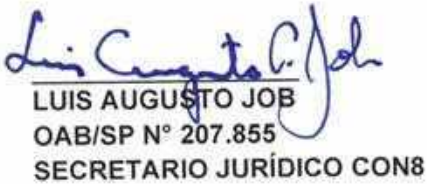 Luis Augusto C. Job
LUIS AUGUSTO JOB
OAB/SP N° 207.855
SECRETARIO JURÍDICO CON8